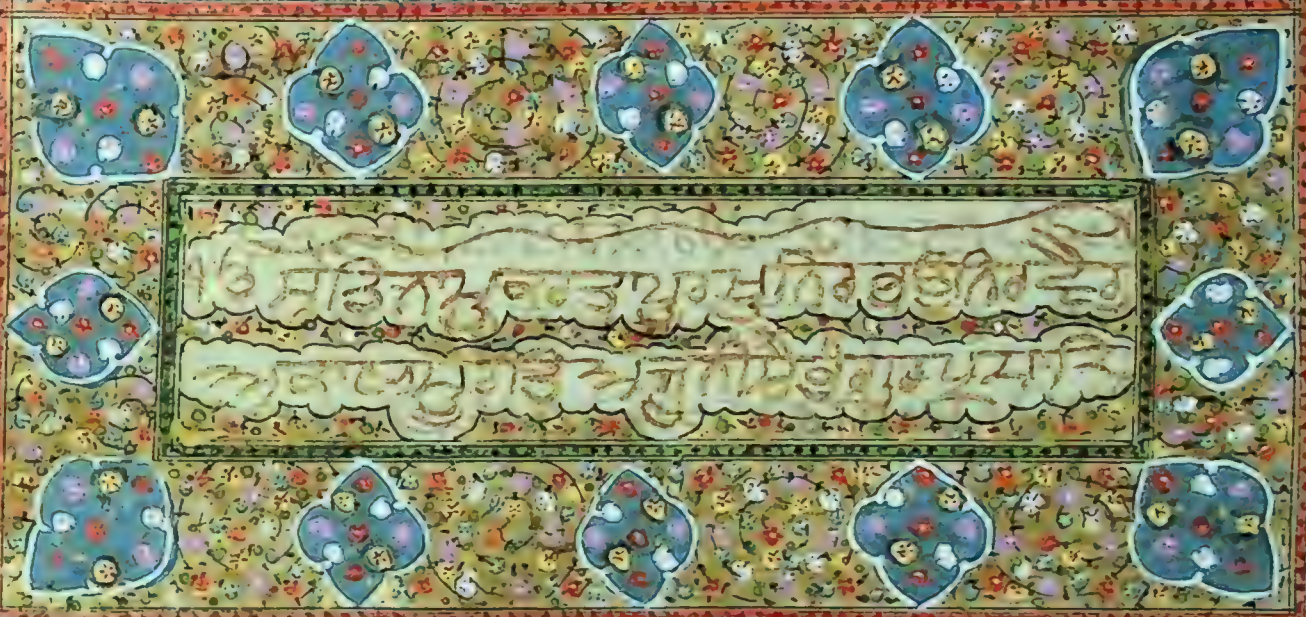 ੴ ਸਤਿਨਾਮੁ ਕਰਤਾ ਪੁਰਖੁ ਨਿਰਭਉ ਨਿਰਵੈਰੁ
ਅਕਾਲ ਮੂਰਤਿ ਅਜੂਨੀ ਸੈਭੰ ਗੁਰਪ੍ਰਸਾਦਿ